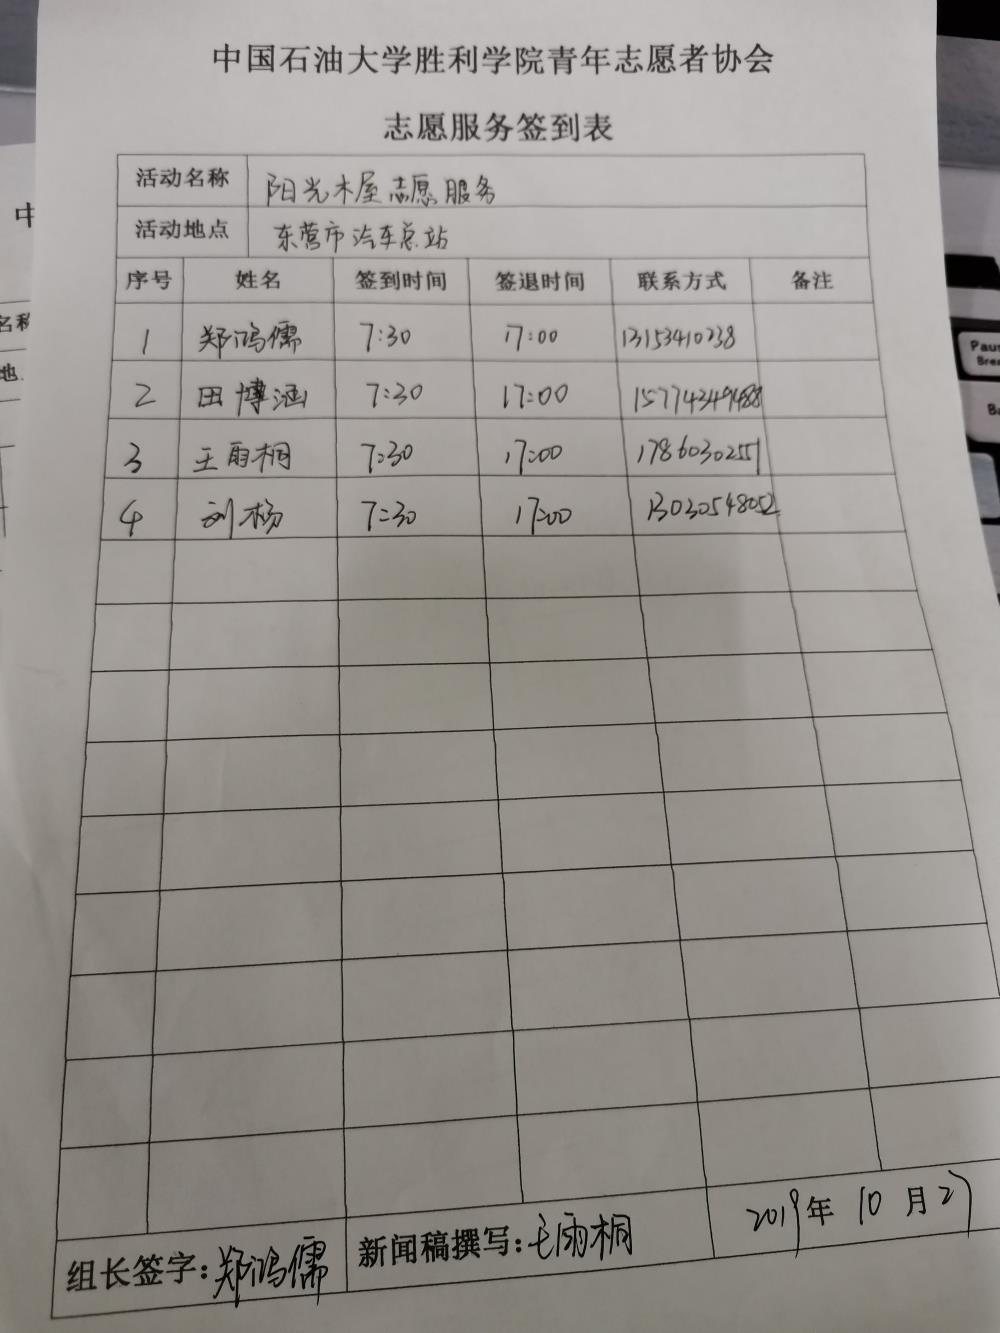 中国石油大学胜利学院青年志愿者协会
志愿服务签到表
活动名称 阳光木屋志愿服务
活动地点 东营市汽车总站
序号 姓名 签到时间 签退时间 联系方式 备注
1 郑鸿儒 7:30 17:00 13153410238
2 田博涵 7:30 17:00
3 王雨桐 7:30 17:00 17860302551
4 刘杨 7:30 17:00 13030548052
组长签字:郑鸿儒 新闻稿撰写:王雨桐 2019年10月27
中
名称
地
Paus
Brea
Ba